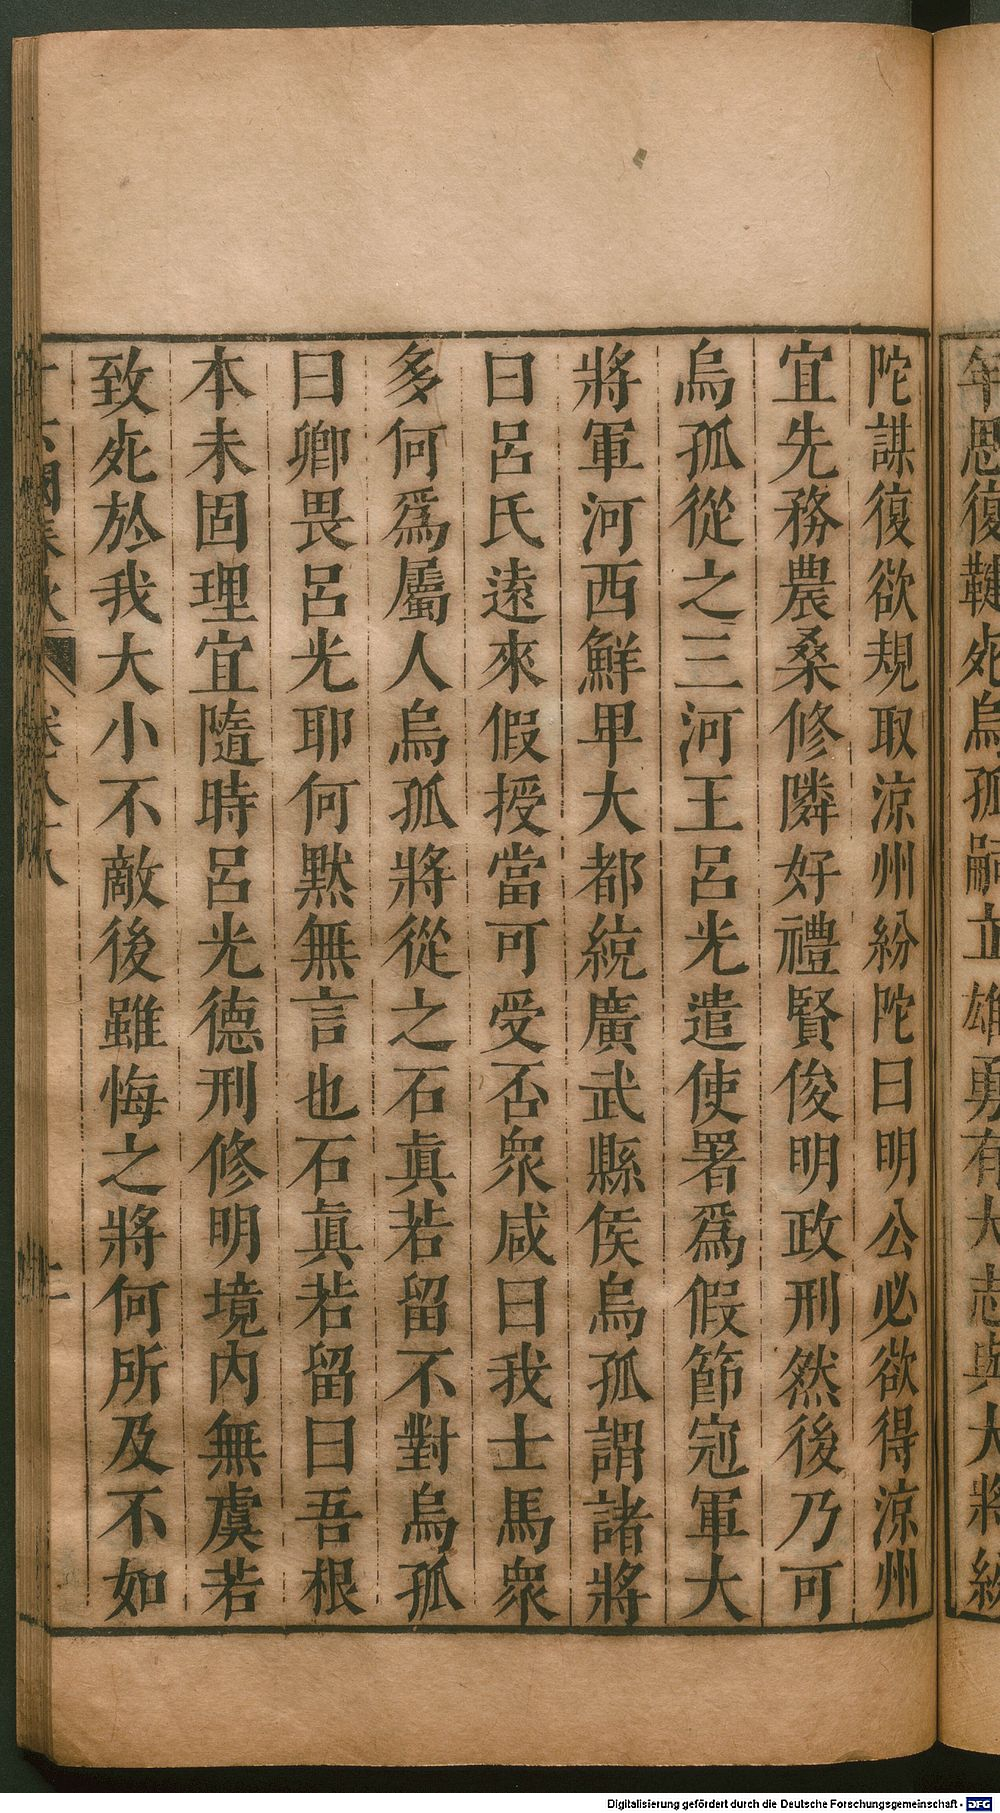 年思復鞬死烏孤嗣立雄勇有大志與大將紛
陀謀復欲規取涼州紛陀曰明公必欲得涼州
宜先務農桑修隣好禮賢俊明政刑然後乃可
烏孤從之三河王呂光遣使署爲假節冠軍大
將軍河西鮮卑大都統廣武縣侯烏孤謂諸將
曰呂氏遠來假授當可受否衆咸曰我士馬衆
多何爲屬人烏孤將從之石眞若留不對烏孤
曰卿畏呂光耶何默無言也石眞若留曰吾根
本未固理宜隨時呂光德刑修明境內無虞若
致死於我大小不敵後雖悔之將何所及不如
十六國春秋 卷八十八 二
Digitalisierung gefördert durch die Deutsche Forschungsgemeinschaft - DFG